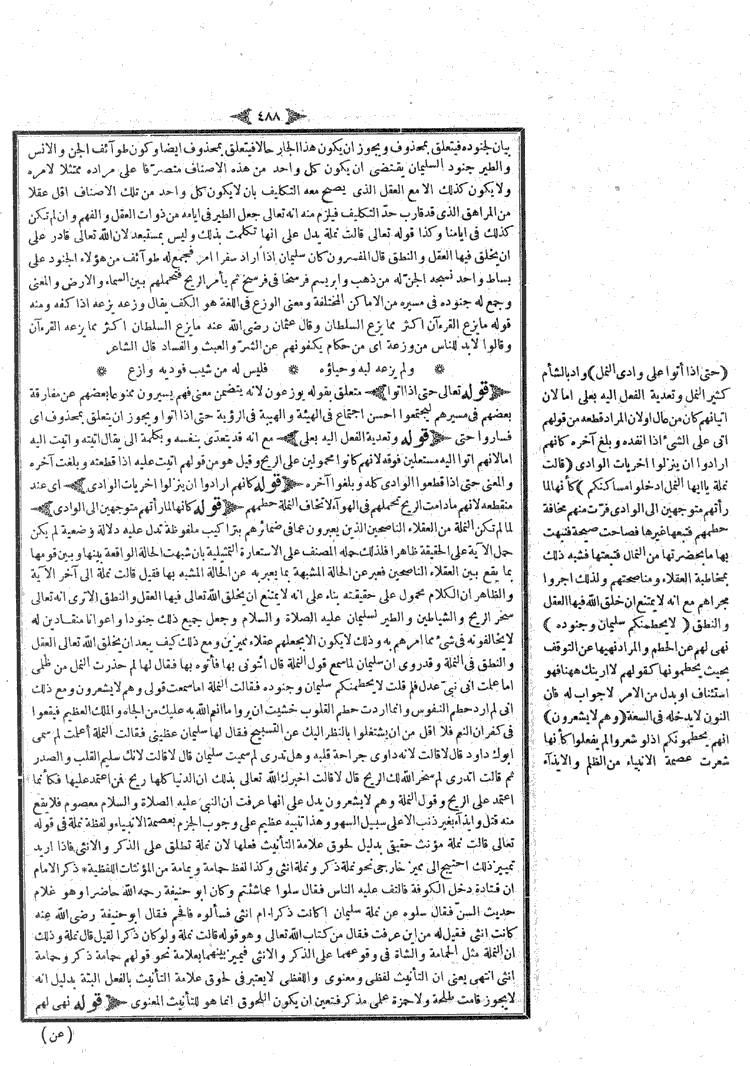 ﴿ ٤٨٨ ﴾
بيان لجنوده فيتعلق بمحذوف ويجوز ان يكون هذا الجار حالا فيتعلق بمحذوف ايضا وكون طوآئف الجن والانس
والطير جنود السليمان يقتضى ان يكون كل واحد من هذه الاصناف متصرّفا على مراده ممتثلا لامره
ولا يكون كذلك الا مع العقل الذى يصح معه التكليف بان لا يكون كل واحد من تلك الاصناف اقل عقلا
من المراهق الذى قد قارب حدّ التكليف فيلزم منه انه تعالى جعل الطير فى ايامه من ذوات العقل والفهم وان لم تكن
كذلك فى ايامنا وكذا قوله تعالى قالت نملة يدل على انها تكلمت بذلك وليس بمستبعد لان الله تعالى قادر على
ان يخلق فيها العقل والنطق قال المفسرون كان سليمان اذا اراد سفرا امر فجمع له طوآئف من هؤلاء الجنود على
بساط واحد نسجه الجن له من ذهب وابريسم فرسخا فى فرسخ ثم يأمر الريح فتحملهم بين السماء والارض والمعنى
وجمع له جنوده فى مسيره من الاماكن المختلفة ومعنى الوزع فى اللغة هو الكف يقال وزعه يزعه اذا كفه ومنه
قوله ما يزع القرءآن اكثر مما يزع السلطان وقال عثمان رضى الله عنه ما يزع السلطان اكثر مما يزعه القرءآن
وقالوا لابد للناس من وزعة اى من حكام يكفونهم عن الشر والعبث والفساد قال الشاعر
* ولم يزعه لبه وحياؤه * فليس له من شيب فوديه وازع *
﴿قوله تعالى حتى اذا اتوا﴾ متعلق بقوله يوزعون لانه يتضمن معنى فهم يسيرون ممنوعا بعضهم عن مفارقة
بعضهم فى مسيرهم ليجتمعوا احسن اجتماع فى الهيئة والهيبة فى الرؤية حتى اذا اتوا ويجوز ان يتعلق بمحذوف اى
فساروا حتى ﴿قوله وتعدية الفعل اليه بعلى﴾ مع انه قد يتعدى بنفسه وبكلمة الى يقال اتيته واتيت اليه
اما لانهم اتوا اليه مستعلين فوقه لانهم كانوا محمولين على الريح وقيل هو من قولهم اتيت عليه اذا قطعته وبلغت آخره
والمعنى حتى اذا قطعوا الوادى كله وبلغوا آخره ﴿قوله كانهم ارادوا ان ينزلوا اخريات الوادى﴾ اى عند
منقطعه لانهم مادامت الريح تحملهم فى الهوآء لا تخاف النملة حطمهم ﴿قوله كانها لما رأتهم متوجهين الى الوادى﴾
لما لم تكن النملة من العقلاء الناصحين الذين يعبرون عما فى ضمائرهم بتراكيب ملفوظة تدل عليه دلالة وضعية لم يكن
حمل الآية على الحقيقة ظاهرا فلذلك حمله المصنف على الاستعارة التمثيلية بان شبهت الحالة الواقعة بينها وبين قومها
بما يقع بين العقلاء الناصحين فعبر عن الحالة المشبهة بما يعبر به عن الحالة المشبه بها فقيل قالت نملة الى آخر الآية
والظاهر ان الكلام محمول على حقيقته بناء على انه لا يمتنع ان يخلق الله تعالى فيها العقل والنطق الاترى انه تعالى
سخر الريح والشياطين والطير لسليمان عليه الصلاة والسلام وجعل جميع ذلك جنودا واعوانا منقادين له
لا يخالفونه فى شئ مما امرهم به وذلك لا يكون الا بجعلهم عقلاء مميزين ومع ذلك كيف يبعد ان يخلق الله تعالى العقل
والنطق فى النملة وقد روى ان سليمان لما سمع قول النملة قال ائتونى بها فأتوه بها فقال لها لم حذرت النمل من ظلمى
اما علمت انى نبى عدل فلم قلت لا يحطمنكم سليمان وجنوده فقالت النملة اما سمعت قولى وهم لا يشعرون ومع ذلك
انى لم ارد حطم النفوس وانما اردت حطم القلوب خشيت ان يروا ما انعم الله به عليك من الجاه والملك العظيم فيقعوا
فى كفران النعم فلا اقل من ان يشتغلوا بالنظر اليك عن التسبيح فقال لها سليمان عظينى فقالت النملة أعلمت لم سمى
ابوك داود قال لا قالت لانه داوى جراحة قلبه وهل تدرى لم سميت سليمان قال لا قالت لانك سليم القلب والصدر
ثم قالت اتدرى لم سخر الله لك الريح قال لا قالت اخبرك الله تعالى بذلك ان الدنيا كلها ريح فمن اعتمد عليها فكأنما
اعتمد على الريح وقول النملة وهم لا يشعرون يدل على انها عرفت ان النبى عليه الصلاة والسلام معصوم فلا يقع
منه قتل وايذآء بغير ذنب الا على سبيل السهو وهذا تنبيه عظيم على وجوب الجزم بعصمة الانبياء ولفظة نملة فى قوله
تعالى قالت نملة مؤنث حقيقى بدليل لحوق علامة التأنيث فعلها لان نملة تطلق على الذكر والانثى فاذا اريد
تمييز ذلك احتيج الى مميز خارجى نحو نملة ذكر ونملة انثى وكذا لفظ حمامة ويمامة من المؤنثات اللفظية * ذكر الامام
ان قتادة دخل الكوفة فالتف عليه الناس فقال سلوا عما شئتم وكان ابو حنيفة رحمه الله حاضرا وهو غلام
حديث السنّ فقال سلوه عن نملة سليمان اكانت ذكرا ام انثى فسألوه فافحم فقال ابو حنيفة رضى الله عنه
كانت انثى فقيل له من اين عرفت فقال من كتاب الله تعالى وهو قوله قالت نملة ولو كان ذكرا لقيل قال نملة وذلك
ان النملة مثل الحمامة والشاة فى وقوعهما على الذكر والانثى فيميز بينهما بعلامة نحو قولهم حمامة ذكر وحمامة
انثى انتهى يعنى ان التأنيث لفظى ومعنوى واللفظى لا يعتبر فى لحوق علامة التأنيث بالفعل البتة بدليل انه
لا يجوز قامت طلحة ولا حمزة على مذكر فتعين ان يكون اللحوق انما هو للتأنيث المعنوى ﴿قوله نهى لهم
(عن)
(حتى اذا أتوا على وادى النمل) واد بالشأم
كثير النمل وتعدية الفعل اليه بعلى اما لان
اتيانهم كان من عال او لان المراد قطعه من قولهم
اتى على الشئ اذا انفده وبلغ آخره كانهم
ارادوا ان ينزلوا اخريات الوادى (قالت
نملة يا ايها النمل ادخلوا مساكنكم) كأنها لما
رأتهم متوجهين الى الوادى فرّت منهم مخافة
حطمهم فتبعها غيرها فصاحت صيحة فنبهت
بها ما بحضرتها من النمال فتبعتها فشبه ذلك
بمخاطبة العقلاء ومناصحتهم ولذلك اجروا
مجراهم مع انه لا يمتنع ان خلق الله فيها العقل
والنطق (لا يحطمنكم سليمان وجنوده)
نهى لهم عن الحطم والمراد نهيها عن التوقف
بحيث يحطمونها كقولهم لا ارينك ههنا فهو
استئناف او بدل من الامر لا جواب له فان
النون لا يدخله فى السعة (وهم لا يشعرون)
انهم يحطمونكم اذ لو شعروا لم يفعلوا كأنها
شعرت عصمة الانبياء من الظلم والايذآء